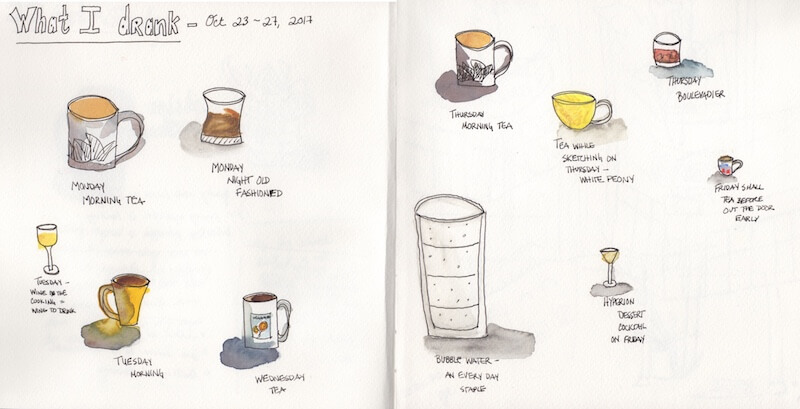 What I drank - Oct 23~27, 2017
MONDAY
MORNING TEA
MONDAY
NIGHT OLD
FASHIONED
TUESDAY -
WINE IN THE
COOKING =
WINE TO DRINK
TUESDAY
MORNING
WEDNESDAY
TEA
THURSDAY
MORNING TEA
THURSDAY
BOULEVADIER
TEA WHILE
SKETCHING ON
THURSDAY -
WHITE PEONY
FRIDAY SMALL
TEA BEFORE
OUT THE DOOR
EARLY
BUBBLE WATER -
AN EVERY DAY
STAPLE
HYPERION
DESSERT
COCKTAIL
ON FRIDAY